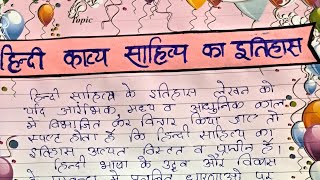 Topic
हिन्दी काव्य साहित्य का इतिहास
हिन्दी साहित्य के इतिहास लेखन को
यदि आरंभिक, मध्य व आधुनिक काल
में विभाजित कर विचार किया जाए तो
स्पष्ट होता है कि हिन्दी साहित्य का
इतिहास अत्यंत विस्तृत व प्राचीन है।
हिन्दी भाषा के उद्भव और विकास
में प्रचलित धारणाओं पर